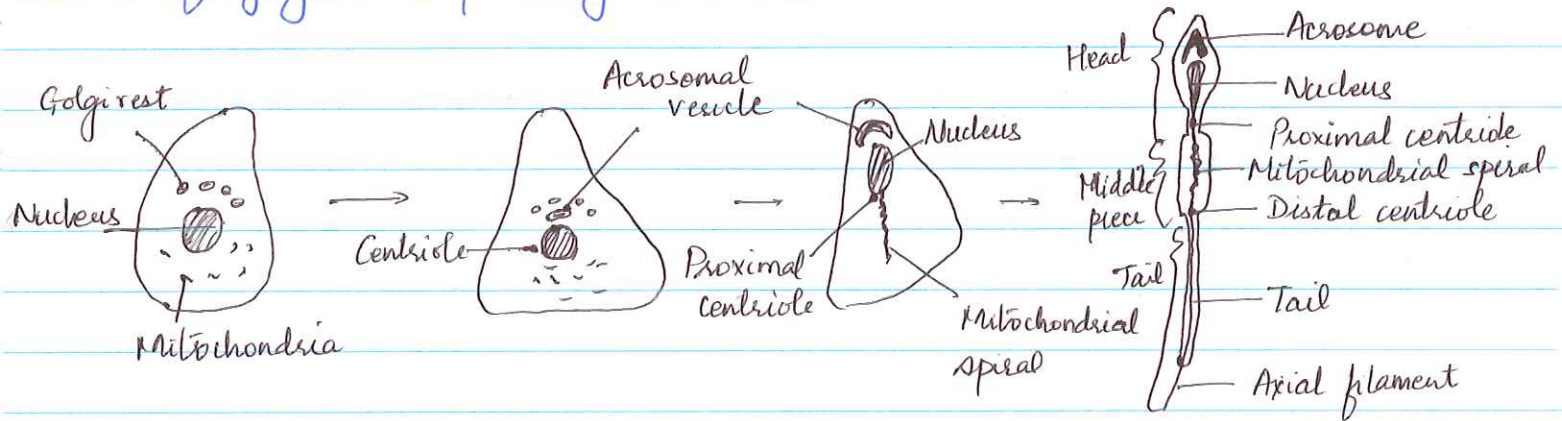 Golgi rest
Nucleus
Mitochondria
Acrosomal
vesicle
Centriole
Nucleus
Proximal
centriole
Mitochondrial
spiral
Head
Middle
piece
Tail
Acrosome
Nucleus
Proximal centriole
Mitochondrial spiral
Distal centriole
Tail
Axial filament